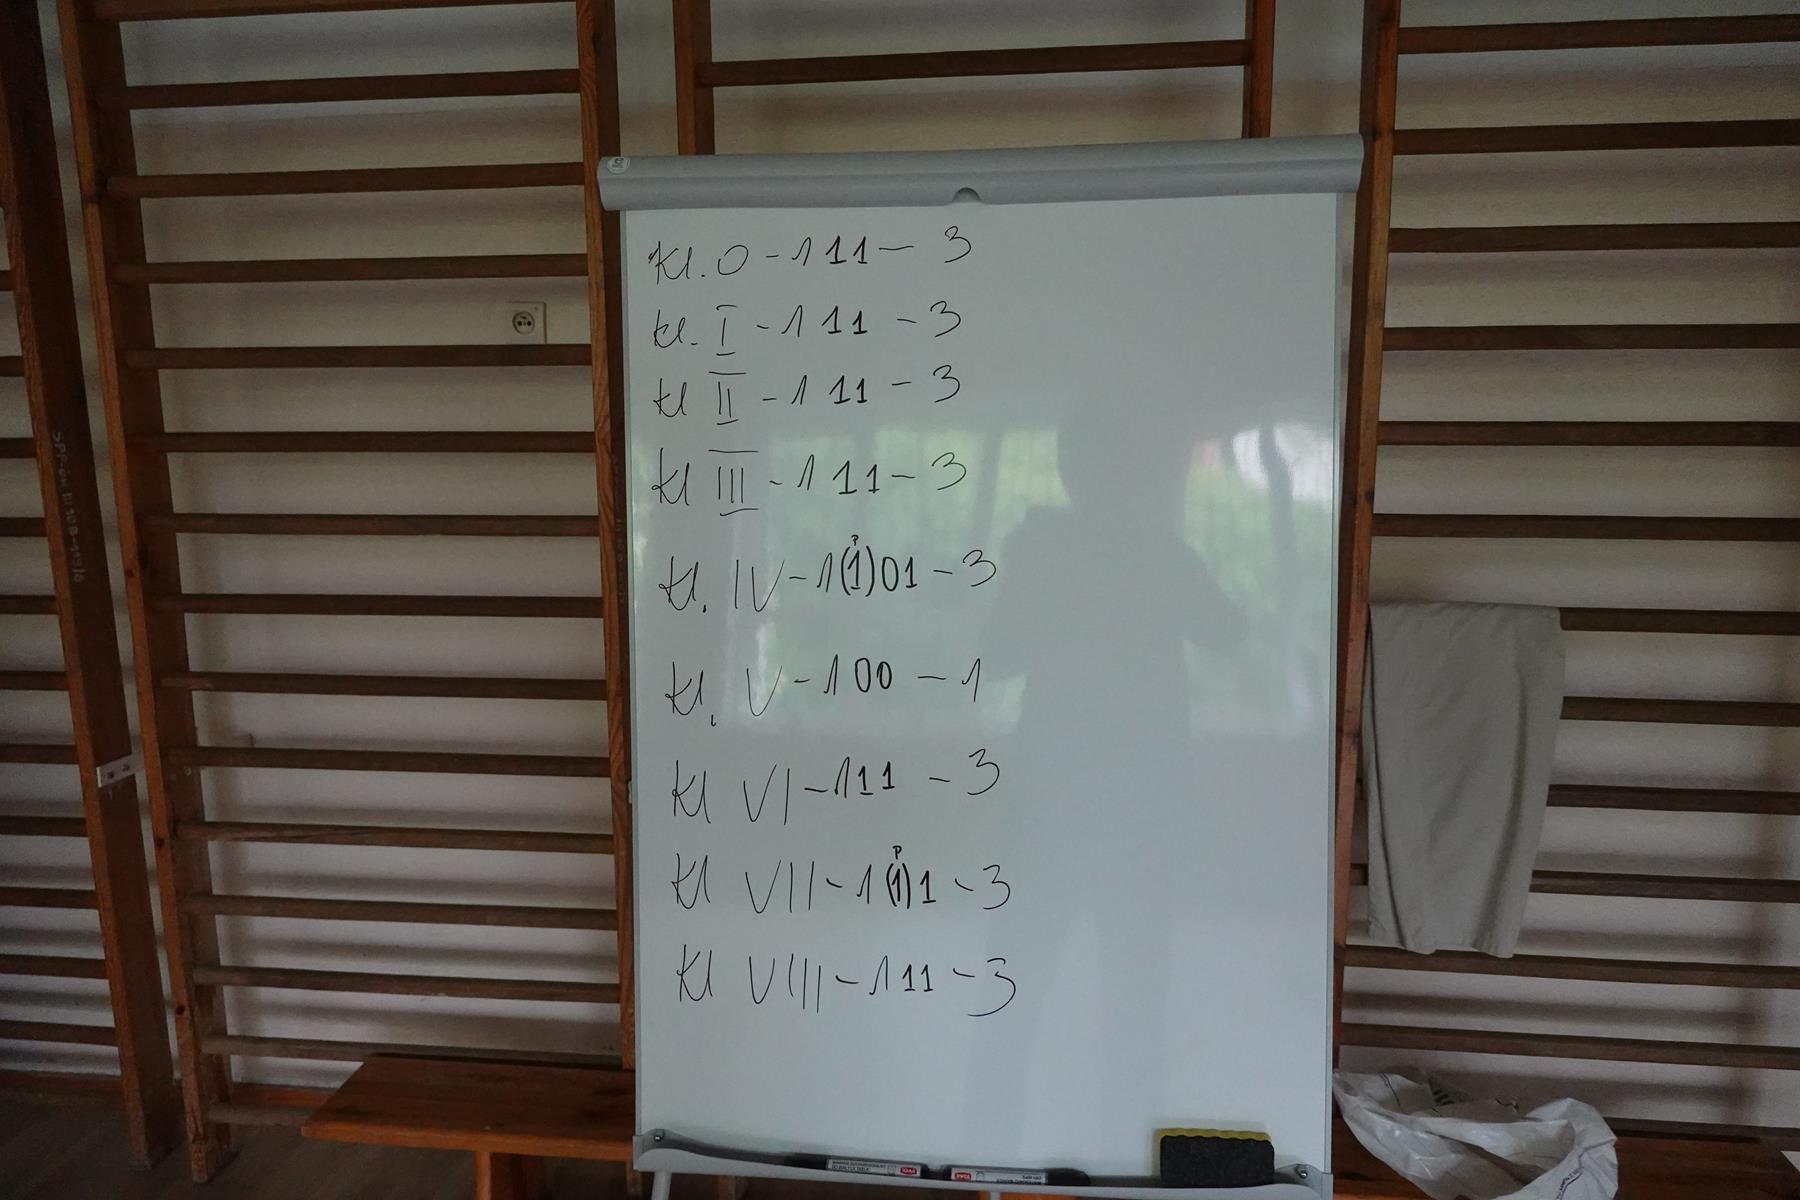 Kl. 0 - 1 1 1 - 3
Kl. I - 1 1 1 - 3
Kl II - 1 1 1 - 3
Kl III - 1 1 1 - 3
P
Kl. IV - 1(1)01 - 3
Kl. V - 100 - 1
Kl VI - 111 - 3
P
Kl VII - 1(1)1 - 3
Kl VIII - 111 - 3